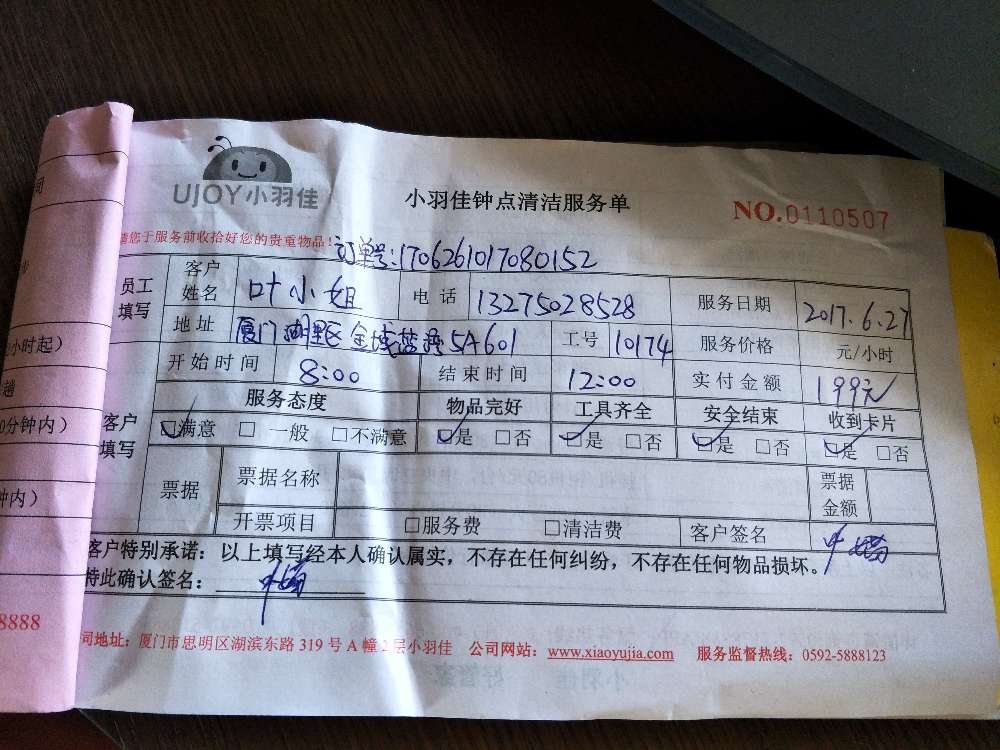 UJOY小羽佳
小羽佳钟点清洁服务单
NO.0110507
请您于服务前收拾好您的贵重物品!
订单号:1706261017080152
员工填写 客户姓名 叶小姐 电话 13275028528 服务日期 2017.6.27
地址 厦门湖里区 5A601 工号 10174 服务价格 元/小时
开始时间 8:00 结束时间 12:00 实付金额 199元
客户填写 服务态度 物品完好 工具齐全 安全结束 收到卡片
☑满意 □一般 □不满意 ☑是 □否 ☑是 □否 ☑是 □否 ☑是 □否
票据 票据名称 票据金额
开票项目 □服务费 □清洁费 客户签名
客户特别承诺：以上填写经本人确认属实，不存在任何纠纷，不存在任何物品损坏。
特此确认签名：
司地址：厦门市思明区湖滨东路 319 号 A 幢 2 层小羽佳 公司网站：www.xiaoyujia.com 服务监督热线：0592-5888123
小时起）
趟
0分钟内）
钟内）
8888